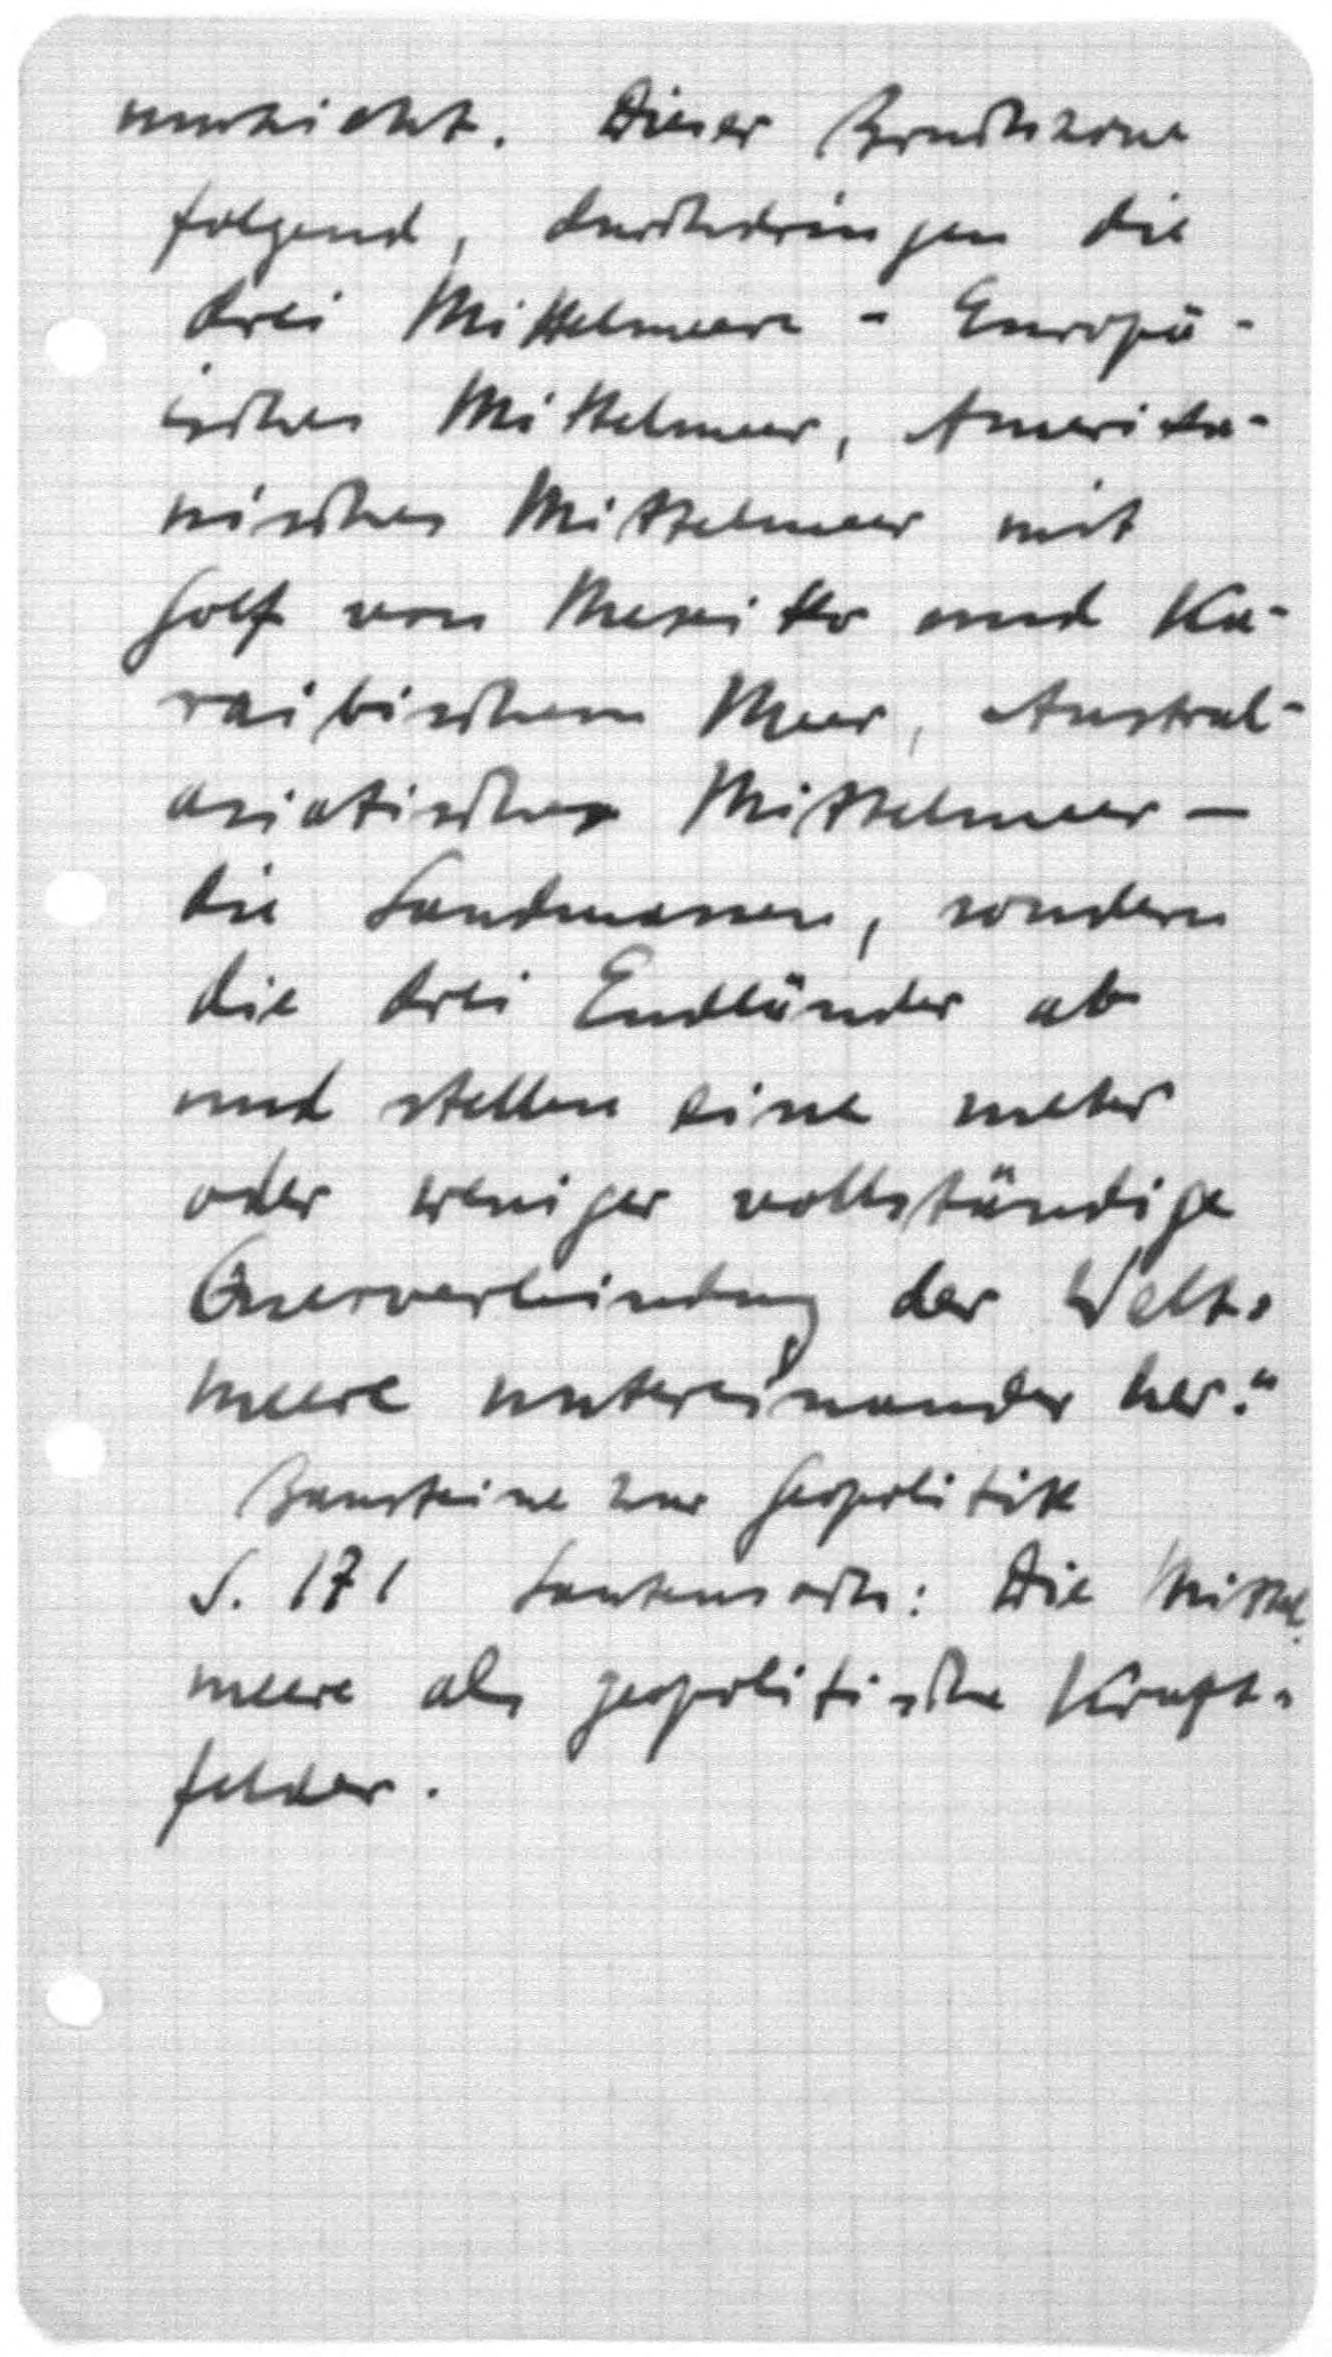 umzieht. Dieser Bruchzone
folgend, durchdringen die
drei Mittelmeere - Europä-
isches Mittelmeer, Amerika-
nisches Mittelmeer mit
Golf von Mexiko und Ka-
raibischem Meer, Austral-
asiatisches Mittelmeer —
die Landmassen, sondern
die drei Südländer ab
und stellen eine mehr
oder weniger vollständige
Querverbindung der Welt-
meere untereinander her."
Bausteine zur Geopolitik
S. 171 Lautensach: Die Mittel-
meere als geopolitische Kraft-
felder.